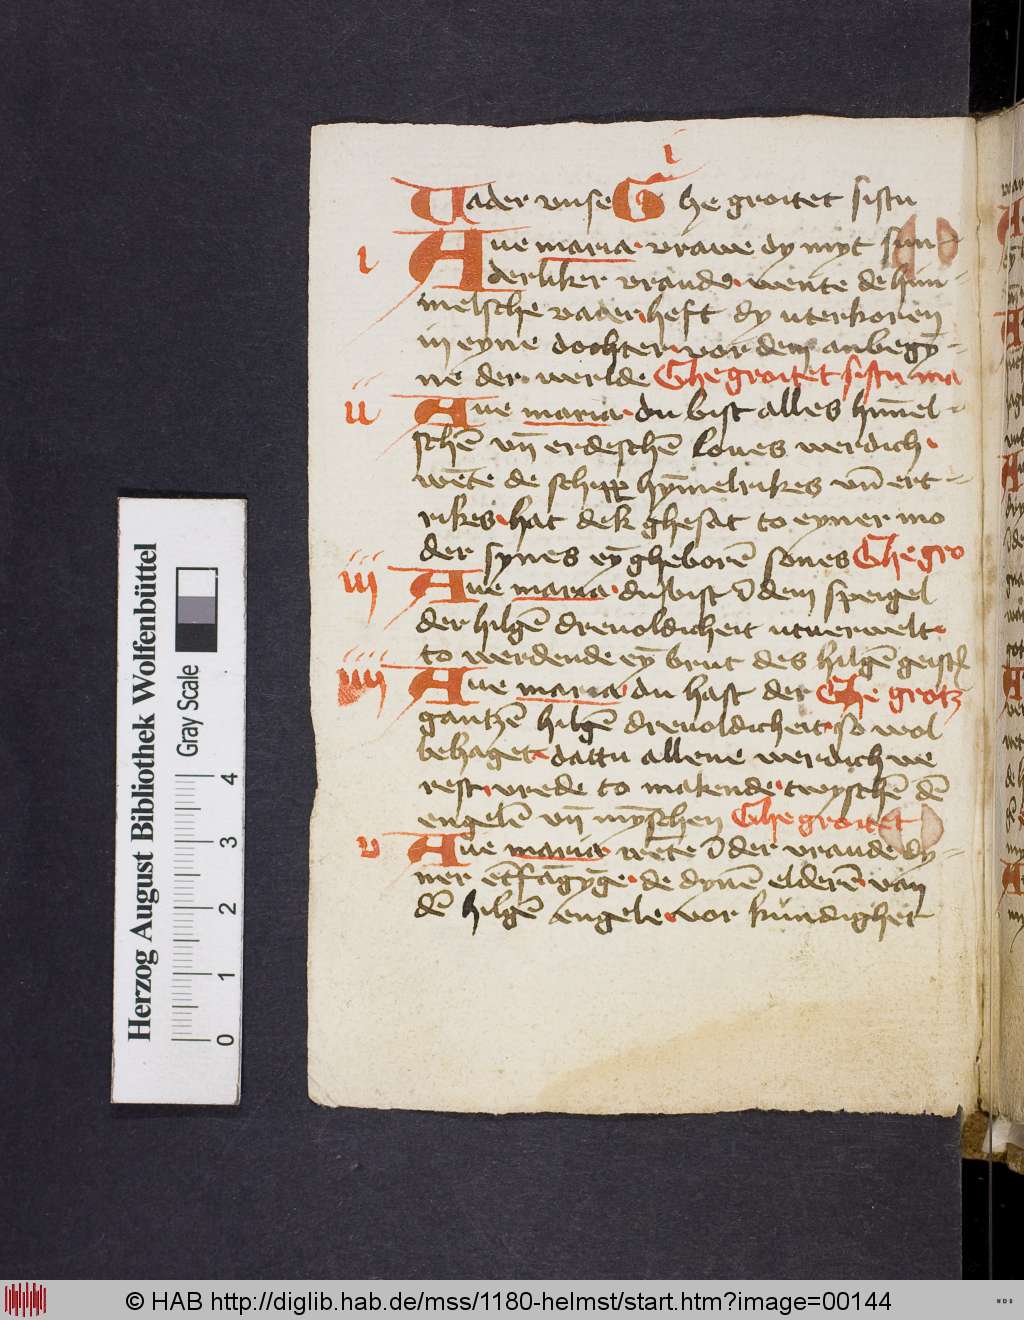 i
Vader vnse Ghe groitet sistu
i Aue maria vrawe dy myt sun
derliker vrande wente de him-
melsche vader heft dy uterkoren
in eyne dochter vor dem anbegȳ-
ne der werlde Ghegroitet sistu ma
ii Aue maria du bist alles hīmel-
schē vn̄ erdeschē loues werdich
wēte de schipp hȳmelrikes vn̄ ert-
rikes hat dek ghesat to eyner mo
der synes eȳ gheborē sones Ghegro
iii Aue maria du bist ī dem speigel
der hilgē dreuoldicheit utuerwelt
to werdende eȳ brut des hilgē geist
iiii Aue maria du hast der Ghe grotz
gantzē hilgē dreuoldicheit so wol
behaget dattu allene werdich we
rest vrede to makende twyschē dē
engelē vn̄ mȳschen Ghegroitet
v Aue maria wēte ī der vraude dy-
ner ētfāgȳge de dynē elderē van
dē hilgē engele vor kundighet
Herzog August Bibliothek Wolfenbüttel
Gray Scale
0 1 2 3 4
© HAB http://diglib.hab.de/mss/1180-helmst/start.htm?image=00144